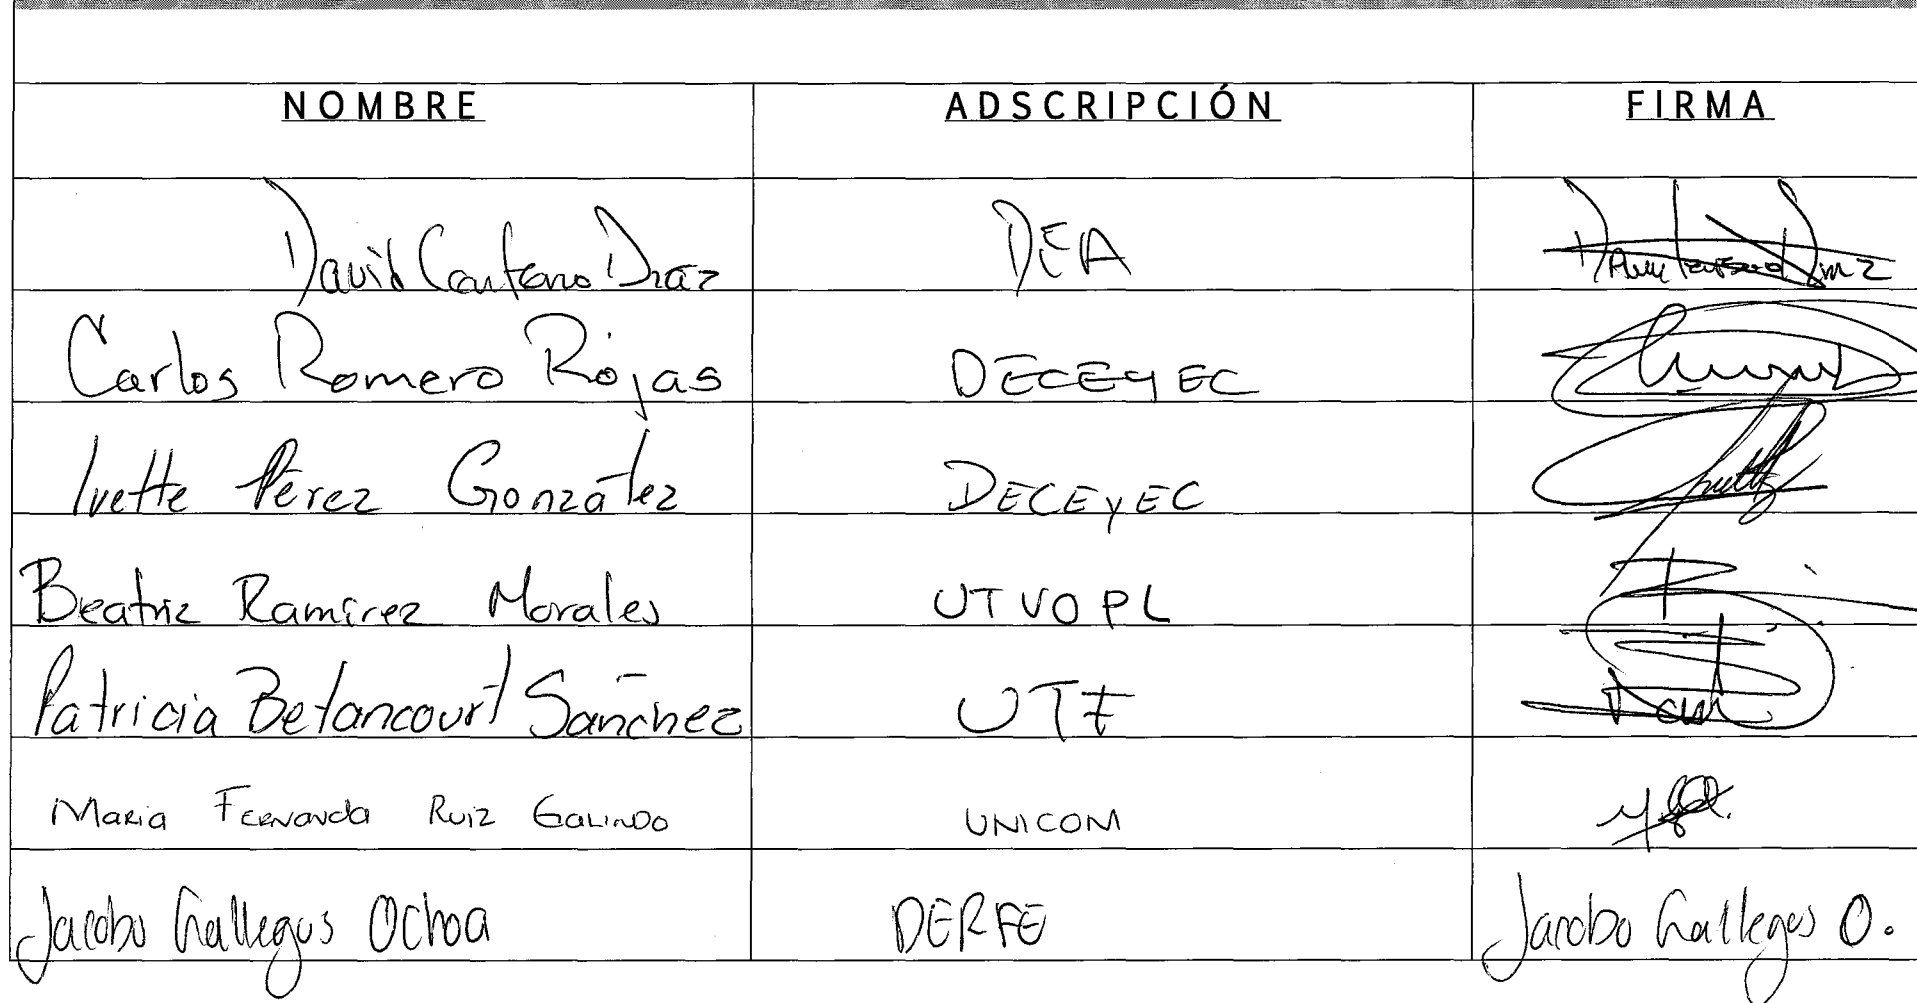 NOMBRE ADSCRIPCIÓN FIRMA
David Centeno Díaz DEA
Carlos Romero Rojas DECEyEC
Ivette Pérez González DECEyEC
Beatriz Ramírez Morales UTVOPL
Patricia Betancourt Sánchez UTF
Maria Fernanda Ruiz Galindo UNICOM
Jacobo Gallegos Ochoa DERFE Jacobo Gallegos O.